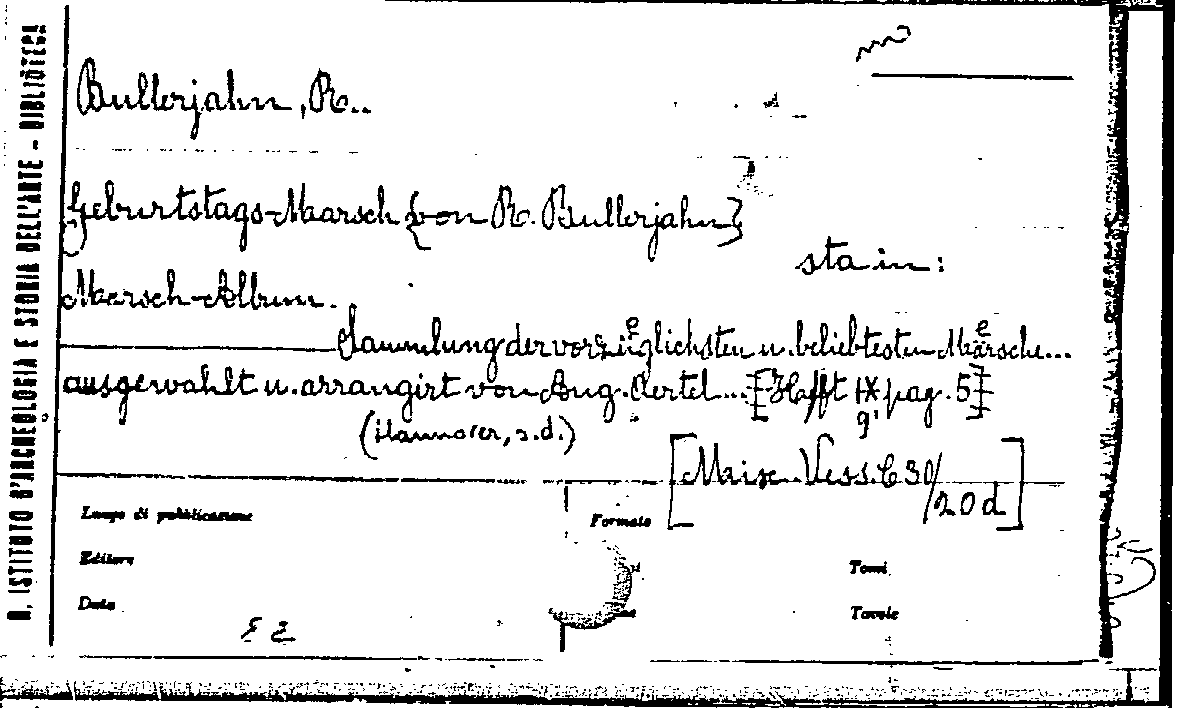 R. ISTITUTO D'ARCHEOLOGIA E STORIA DELL'ARTE - BIBLIOTECA
Bullerjahn, R..
Geburtstags-Marsch {von R. Bullerjahn}
sta in:
Marsch-Album.
Sammlung der vorzüglichsten u. beliebtesten Märsche...
ausgewahlt u. arrangirt von Aug. Oertel... [Hefft IX pag. 5]
9'
(Hannover, s.d.)
[Misc. Vess. C 30/
20 d]
Luogo di pubblicazione
Formato
Editore
Tomi
Data
Tavole